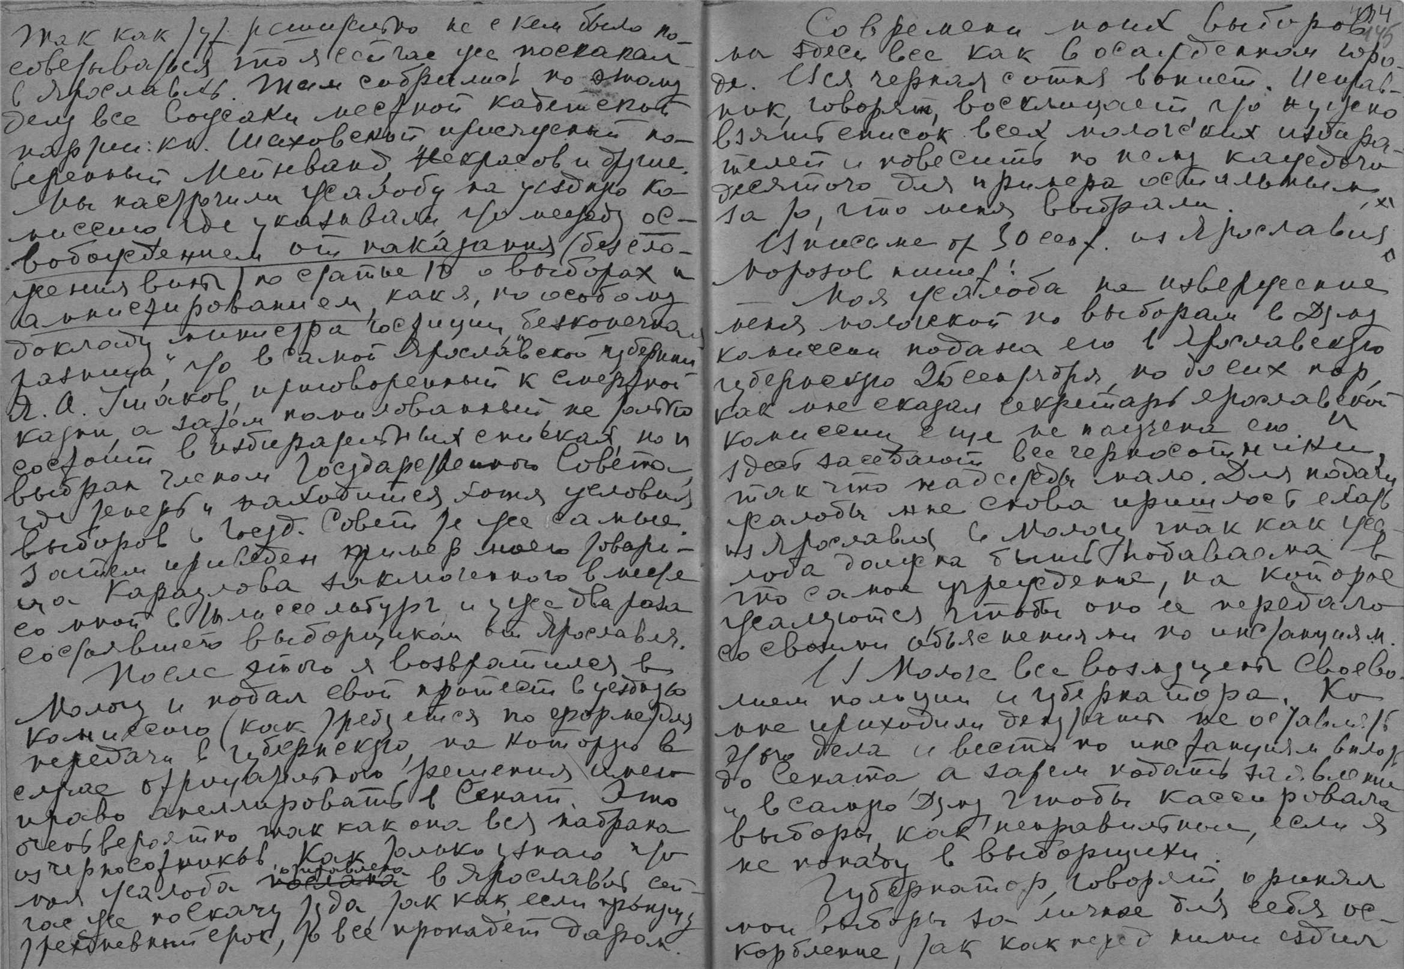 Так как тут решительно не с кем было по-
советываться, то я сейчас уже поскакал
в Ярославль. Там собрались по этому
делу все воусаки местной кадетской
партии: кн. Шаховской присяжный по-
веренный Мейнванд, Некрасов и другие.
Мы настрочили жалобу на уездную ко-
миссию где указывали, что между ос-
вобождением от наказания (без сло-
жения вины) по статье 10 о выборах и
амнистированием, как я, по особому
докладу министра юстиции, бесконечная
разница", что в самой Ярославской губернии
А. Ушаков, приговоренный к смертной
казни, а затем помилованный не только
состоит в избирательных списках, но и
выбран членом Государственного Совета,
где теперь и находится хотя условия
выборов в Госуд. Совет те же самые.
Затем приведен пример моего товари-
ща Караулова заключенного вместе
со мной в Шлиссельбург и уже два раза
состоявшего выборщиком от Ярославля.
После этого я возвратился в
Мологу и подал свой протест в уездную
комиссию (как требуется по форме) для
передачи в губернскую, на которую в
случае отрицательного решения имею
право апеллировать в Сенат. Это
очень вероятно так как она вся набрана
из черносотников. Как только узнаю что
моя жалоба отправлена в Ярославль сей-
час же поскачу туда, так как, если пропущу
трехдневный срок, то все пропадет даром.
144
145
Со времени моих выборов
мы здесь все как в осажденном горо-
де. Вся черная сотня вопиет. Исправ-
ник, говорят, восклицает что нужно
взять список всех мологских избира-
телей и повесить по нему каждого
десятого для примера остальным
за то, что меня выбрали.
В письме от 30 сент. из Ярославля
Морозов пишет:
Моя жалоба на извержение
меня мологской по выборам в Думу
комиссии подана ею в Ярославскую
губернскую 26 сентября, но до сих пор,
как мне сказал секретарь Ярославской
комиссии, еще не получена ею. И
здесь заседают все черносотники,
так что надежды мало. Для подачи
жалобы мне снова пришлось ехать
из Ярославля в Мологу так как жа-
лоба должна быть подаваема в
то самое учреждение, на которое
жалуются, чтобы оно ее передало
со своими объяснениями по инстанциям.
В Мологе все возмущены своево-
лием полиции и губернатора. Ко
мне приходили депутаты не оставлять
этого дела и вести по инстанциям вплоть
до Сената а затем подать заявление
и в самую Думу чтобы кассировала
выборы, как неправильные, если я
не попаду в выборщики.
Губернатор, говорят, принял
мои выборы за личное для себя ос-
корбление, так как перед ними ездил